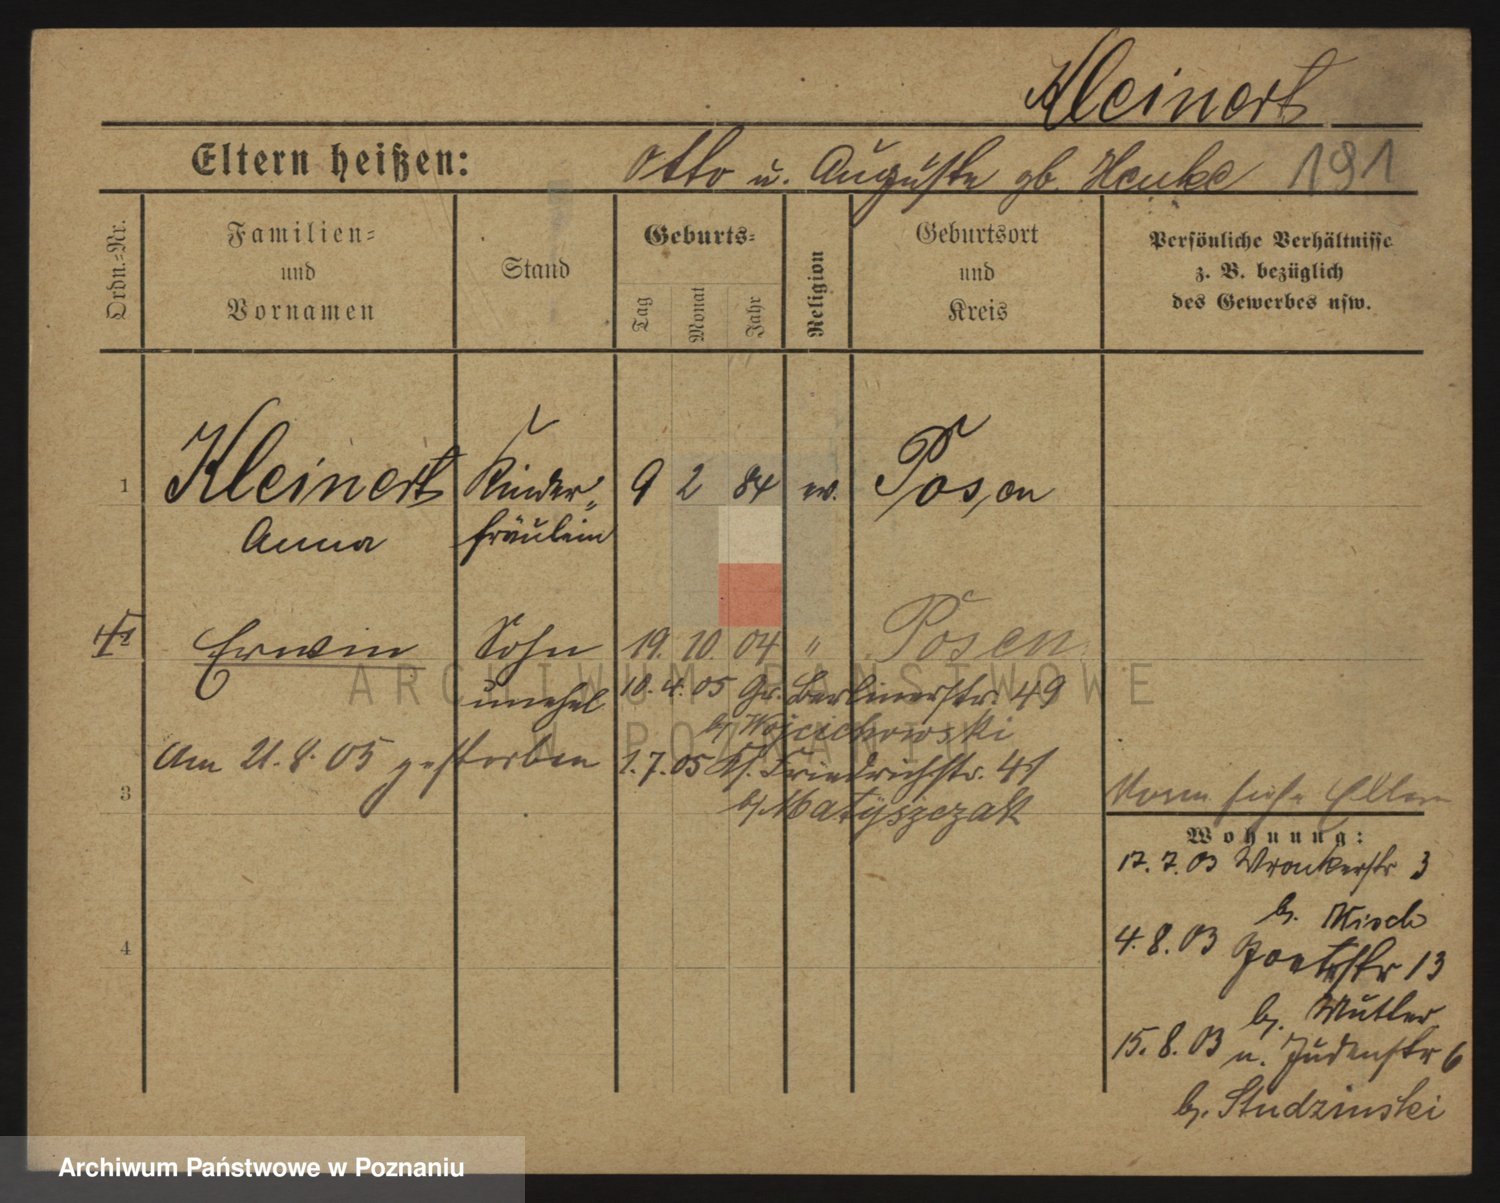 Kleinert
Eltern heißen: Otto u. Auguste gb Henke 191
Ordn.-Nr.
Familien-
und
Vornamen
Stand
Geburts-
Tag
Monat
Jahr
Religion
Geburtsort
und
Kreis
Persönliche Verhältnisse
z. B. bezüglich
des Gewerbes usw.
1 Kleinert Kinder- 9 2 84 ev. Posen
Anna fräulein
Erwin Sohn 19. 10. 04 " Posen
ARCHIWUM PAŃSTWOWE
unehel 10. 4. 05 Gr. Berlinerstr. 49
W POZNANIU
bj Wojcichowski
Am 21. 8. 05 gestorben 1. 7. 05 Friedrichstr. 41
3
bj Matyszczak
Vorn siehe Eltern
Wohnung:
17. 7. 03 Wronkerstr 3
bj.
4
4. 8. 03 13
bj. Mutter
15. 8. 03 u. Judenstr 6
bj. Studzinski
Archiwum Państwowe w Poznaniu